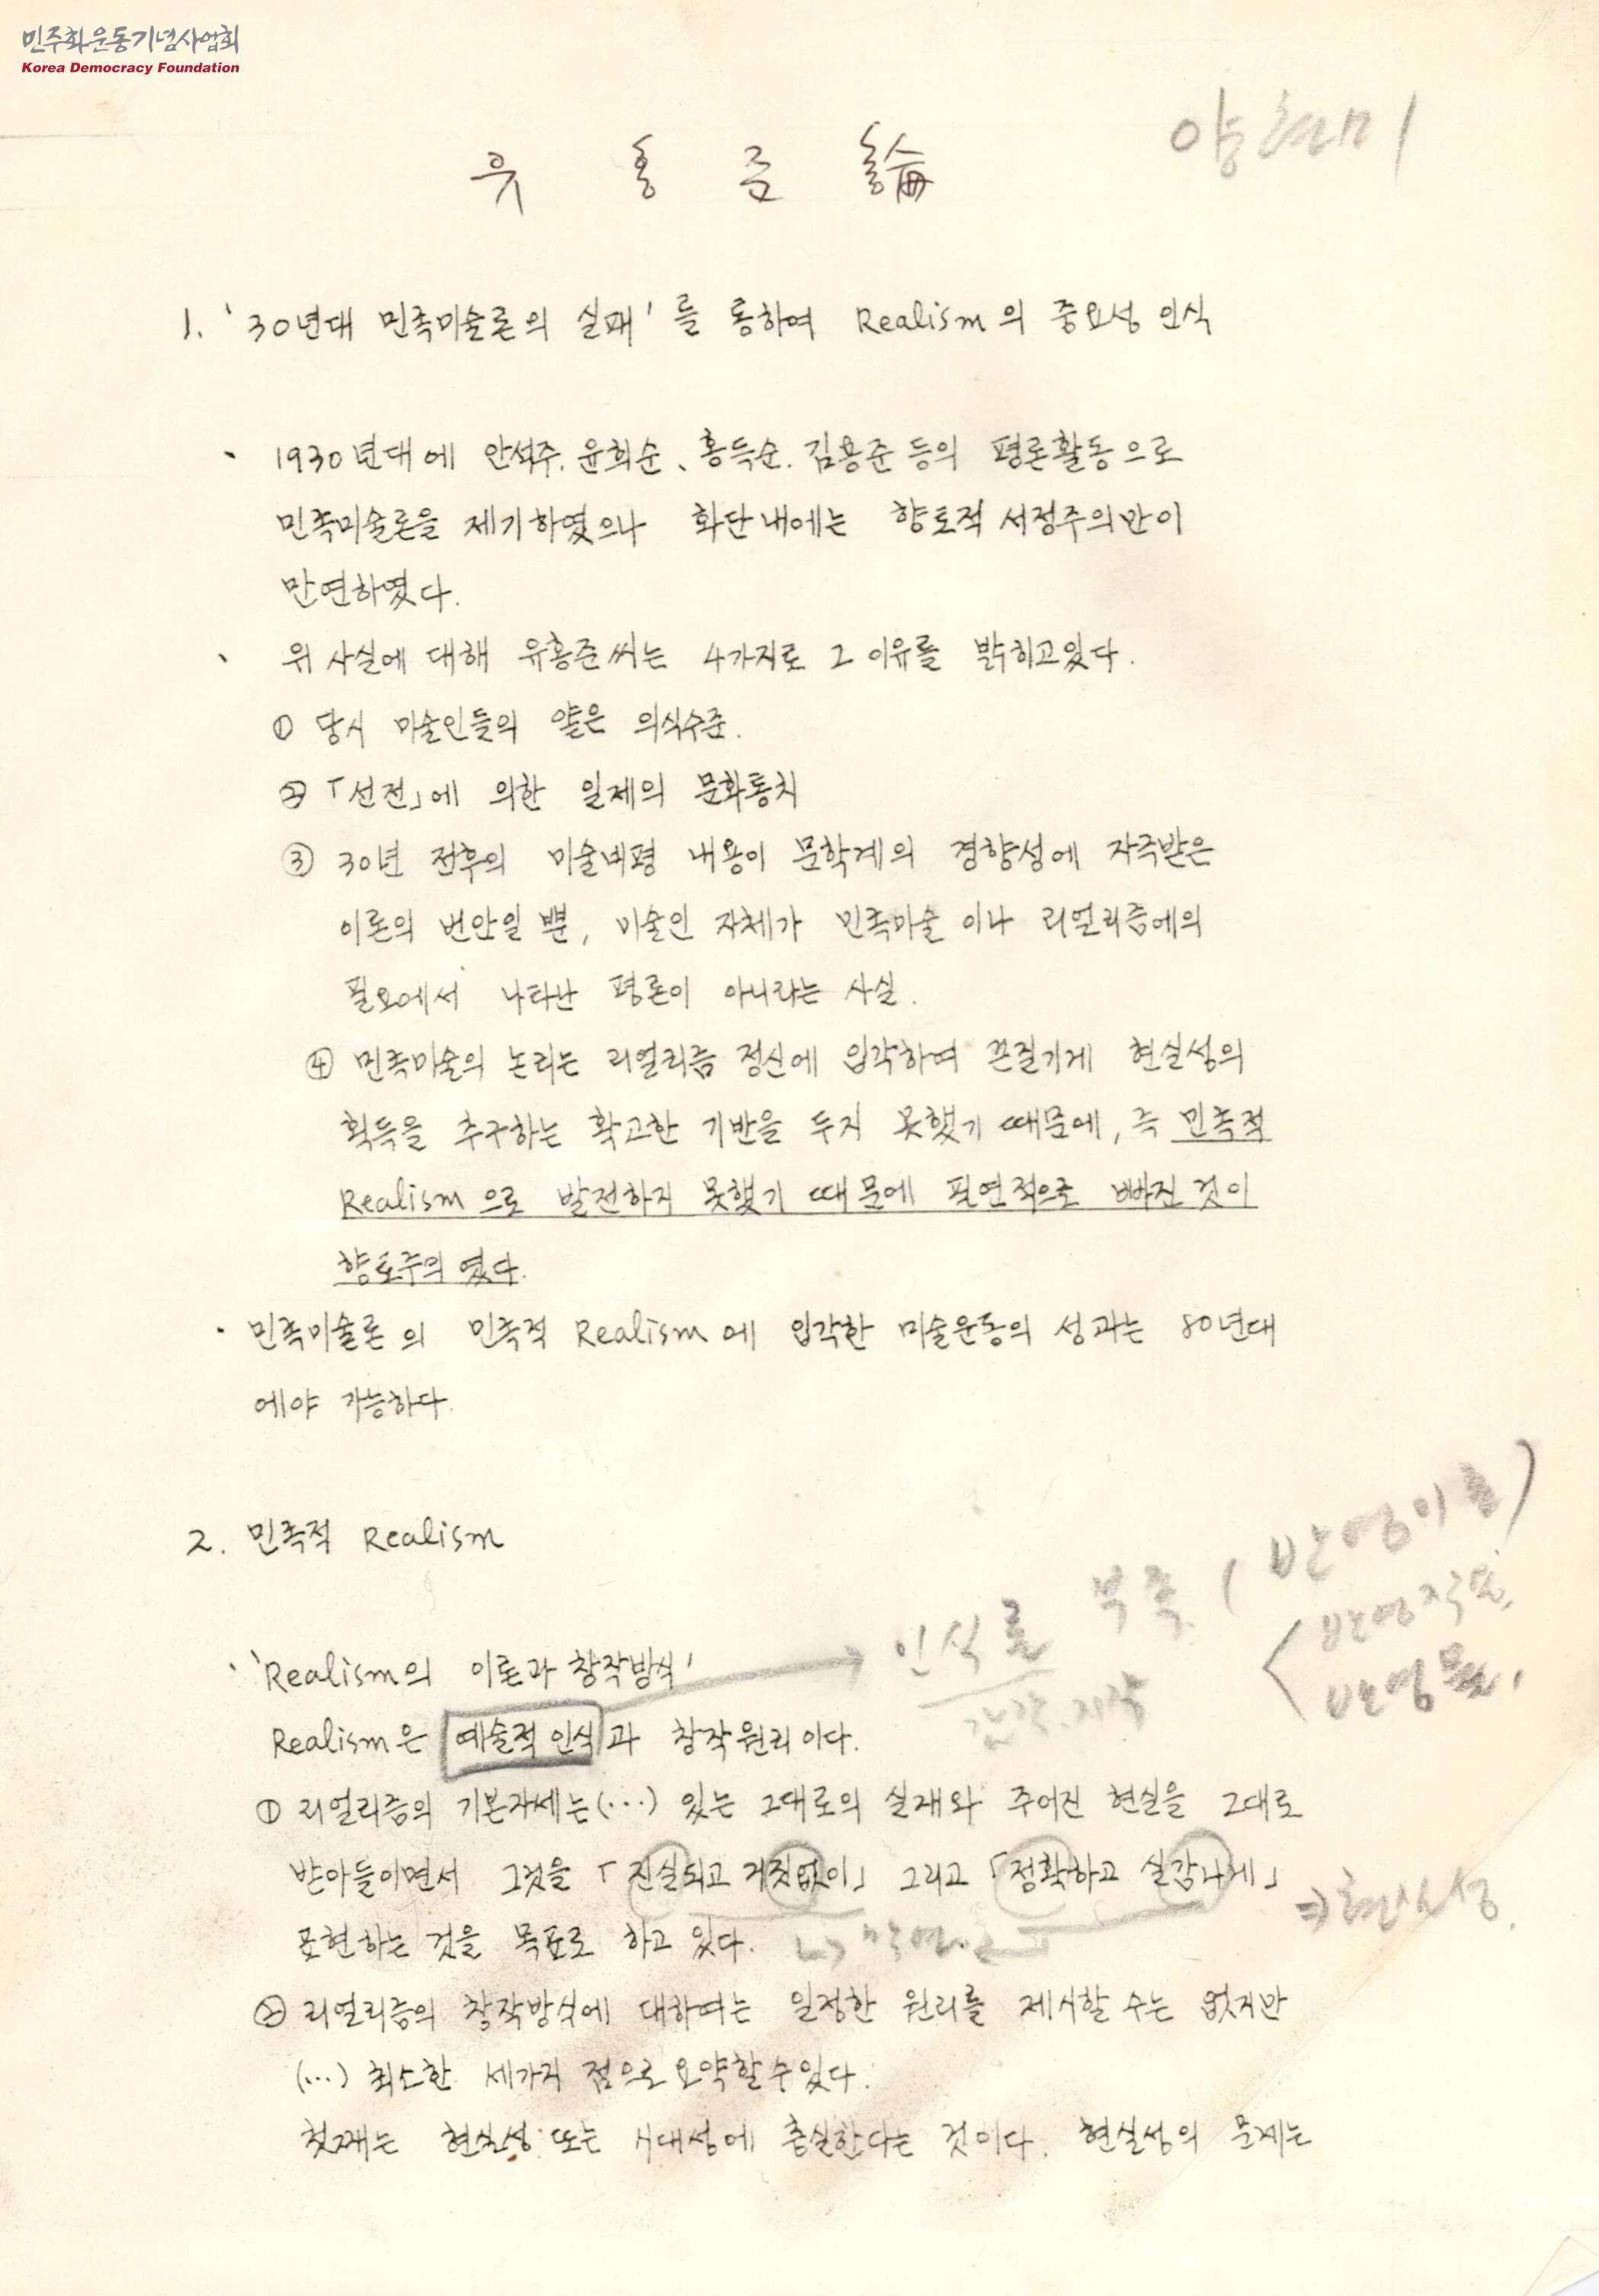 민주화운동기념사업회
Korea Democracy Foundation
양현미
유 홍 준 論
1. '30년대 민족미술론의 실패'를 통하여 Realism의 중요성 인식
· 1930년대에 안석주, 윤희순, 홍득순, 김용준 등의 평론활동으로
민족미술론을 제기하였으나 화단내에는 향토적 서정주의만이
만연하였다.
· 위 사실에 대해 유홍준씨는 4가지로 그 이유를 밝히고있다.
① 당시 미술인들의 얇은 의식수준.
② 「선전」에 의한 일제의 문화통치
③ 30년 전후의 미술비평 내용이 문학계의 경향성에 자극받은
이론의 번안일 뿐, 미술인 자체가 민족미술 이나 리얼리즘에의
필요에서 나타난 평론이 아니라는 사실.
④ 민족미술의 논리는 리얼리즘 정신에 입각하여 끈질기게 현실성의
획득을 추구하는 확고한 기반을 두지 못했기 때문에, 즉 민족적
Realism으로 발전하지 못했기 때문에 필연적으로 빠진 것이
향토주의 였다.
· 민족미술론의 민족적 Realism에 입각한 미술운동의 성과는 80년대
에야 가능하다.
2. 민족적 Realism
인식론 부족 (반영이론)
반영
반영물,
· 'Realism의 이론과 창작방식'
Realism은 예술적 인식과 창작원리이다.
① 리얼리즘의 기본자세는(…) 있는 그대로의 실재와 주어진 현실을 그대로
받아들이면서 그것을 「진실되고 거짓없이」 그리고 「정확하고 실감나게」
⇒ 현실성.
표현하는 것을 목표로 하고 있다.
② 리얼리즘의 창작방식에 대하여는 일정한 원리를 제시할 수는 없지만
(…) 최소한 세가지 점으로 요약할수있다.
첫째는 현실성 또는 시대성에 충실한다는 것이다. 현실성의 문제는